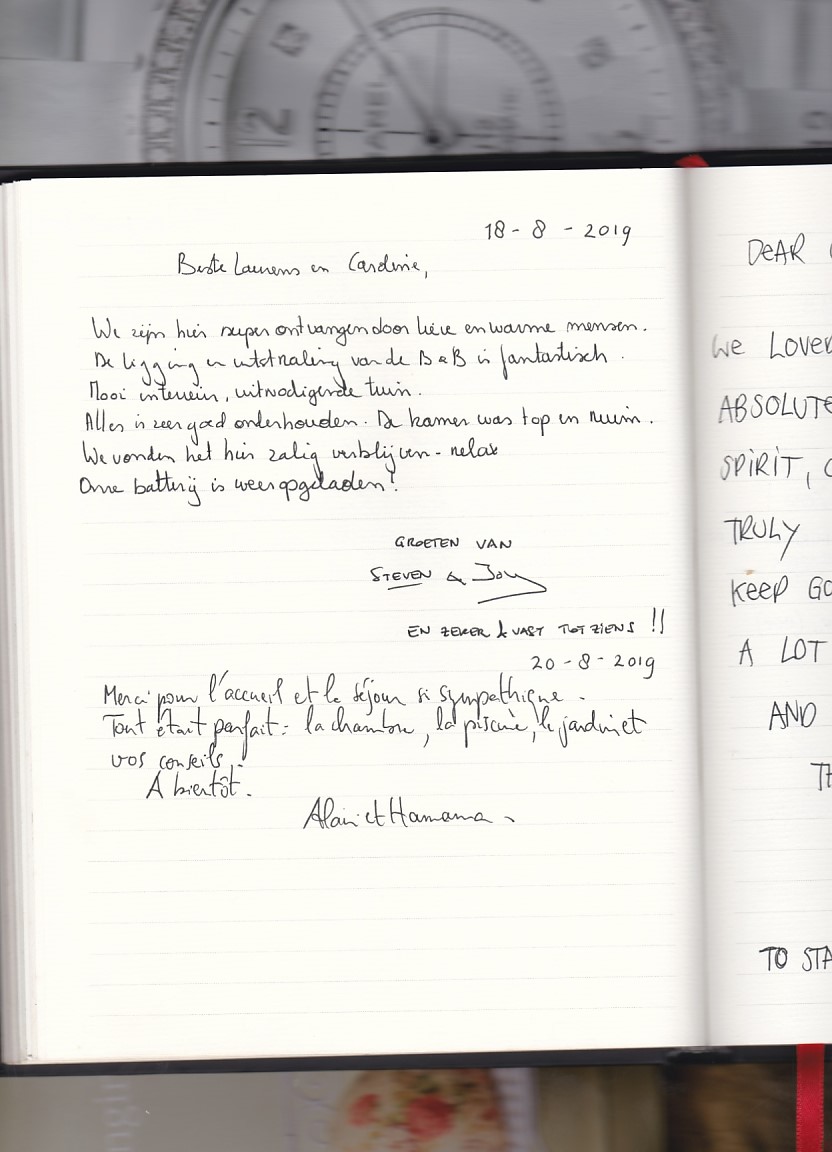 18 - 8 - 2019
Beste Laurens en Caroline,
We zijn hier super ontvangen door lieve en warme mensen.
De ligging en uitstraling van de B&B is fantastisch.
Mooi interieur, uitnodigende tuin.
Alles is zeer goed onderhouden. De kamer was top en ruim.
We vonden het hier zalig verblijven - relax
Onze batterij is weer opgeladen!
GROETEN VAN
STEVEN & Joy
EN ZEKER & VAST TOT ZIENS !!
20 - 8 - 2019
Merci pour l'accueil et le séjour si sympathique.
Tout était parfait : la chambre, la piscine, le jardin et
vos conseils.
A bientôt.
Alain et Hamama.
DEAR
WE LOVED
ABSOLUTE
SPIRIT,
TRULY
KEEP GO
A LOT
AND
TH
TO STA